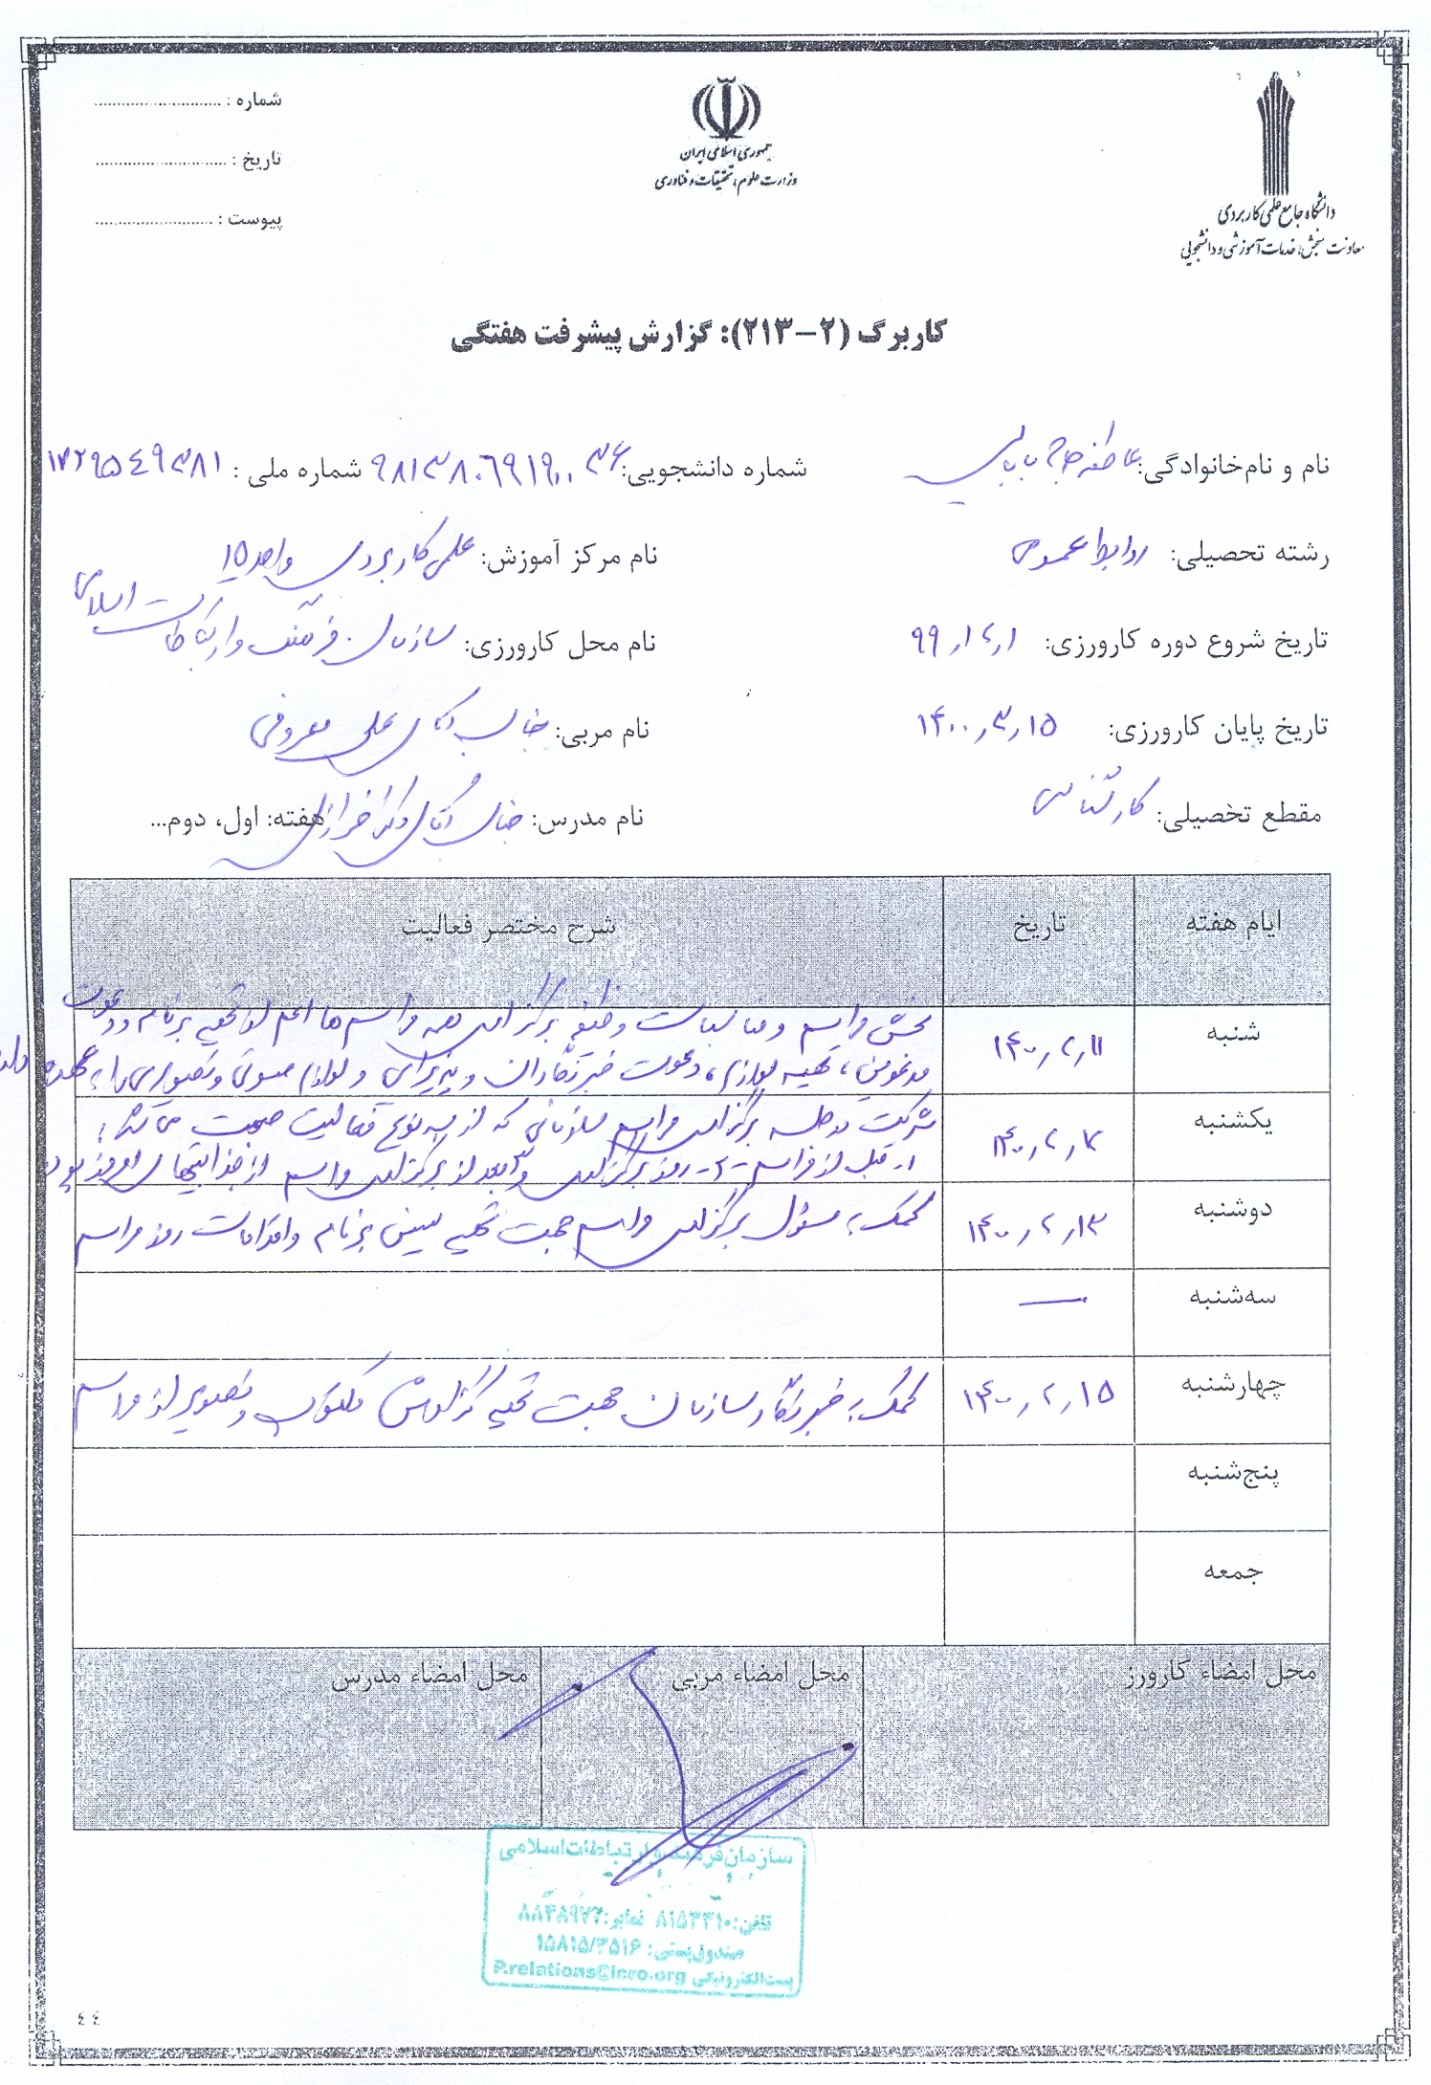 شماره : ............................
تاریخ : ............................
پیوست : ..........................
جمهوری اسلامی ایران
وزارت علوم، تحقیقات و فناوری
دانشگاه جامع علمی کاربردی
معاونت سنجش، خدمات آموزشی و دانشجویی
کاربرگ (۲-۲۱۳): گزارش پیشرفت هفتگی
نام و نام‌خانوادگی: عاطفه حاج بابایی شماره دانشجویی: شماره ملی :
رشته تحصیلی: روابط عمومی نام مرکز آموزش: علمی کاربردی واحد ۱۵
تاریخ شروع دوره کارورزی: ۹۹/۱۲/۱ نام محل کارورزی: سازمان فرهنگ و ارتباطات اسلامی
تاریخ پایان کارورزی: ۱۴۰۰/۳/۱۵ نام مربی: جناب آقای علی معروفی
مقطع تحصیلی: کارشناسی نام مدرس: جناب آقای دکتر هفته: اول، دوم...
ایام هفته تاریخ شرح مختصر فعالیت
شنبه ۱۴۰۰/۲/۱۱ بخش مراسم و مناسبات وظیفه برگزاری همه مراسم ها اعم از تهیه برنامه و دعوت
مدعوین، تهیه لوازم، دعوت خبرنگاران و پذیرایی و لوازم صوتی و تصویری را به عهده دارد
یکشنبه ۱۴۰۰/۲/۱۲ شرکت در جلسه برگزاری مراسم سازمانی که از سه نوع فعالیت صحبت می کند:
۱- قبل از مراسم - ۲- روز برگزاری و ۳ بعد از برگزاری مراسم از جذابیتهای امروز بود
دوشنبه ۱۴۰۰/۲/۱۳ کمک به مسئول برگزاری مراسم جهت تهیه برنامه و اقدامات روز مراسم
سه‌شنبه —
چهارشنبه ۱۴۰۰/۲/۱۵ کمک به خبرنگار سازمان جهت تهیه گزارش مکتوب و تصویر از مراسم
پنج‌شنبه
جمعه
محل امضاء کارورز محل امضاء مربی محل امضاء مدرس
سازمان فرهنگ و ارتباطات اسلامی
تلفن: ۸۱۵۳۳۱۰ نمابر:
صندوق پستی: ۱۵۸۱۵/۳۵۱۶
پست الکترونیکی P.relations@icro.org
٤٤